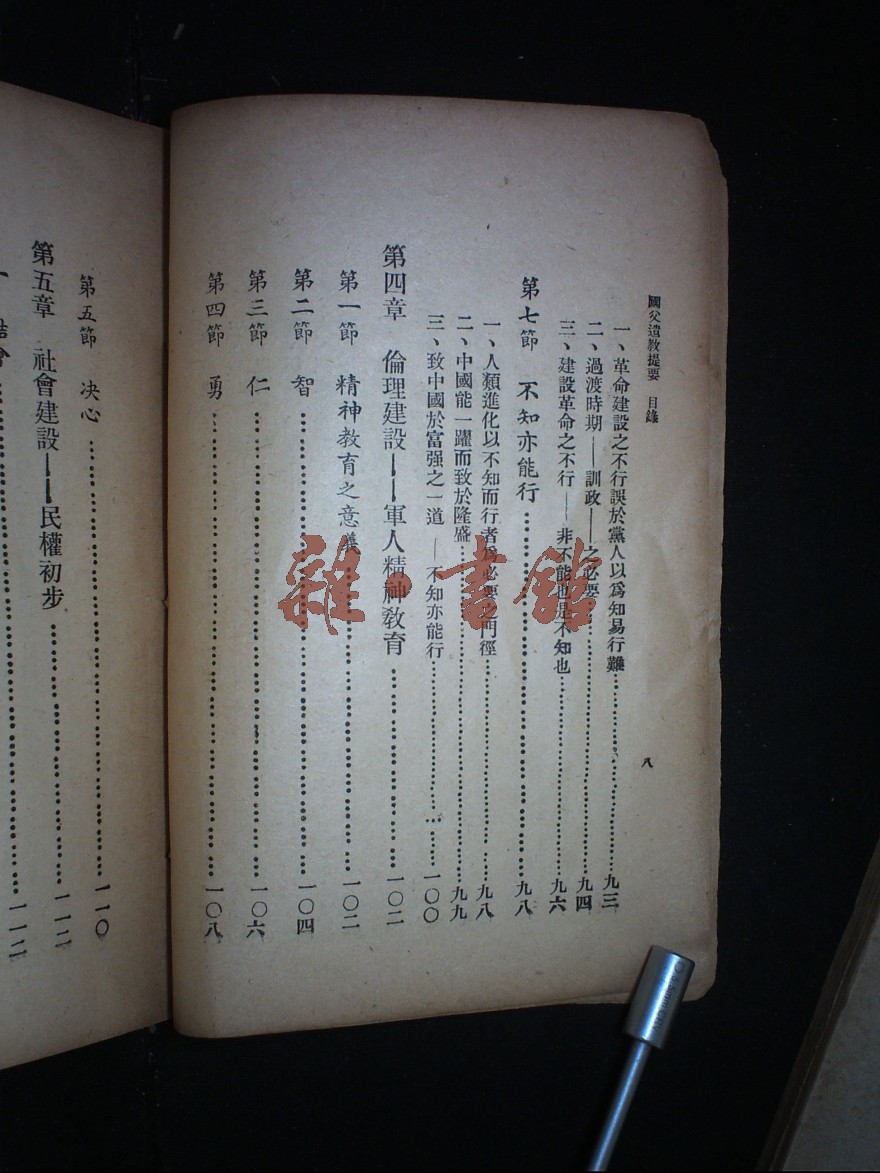 國父遺教提要 目錄 八
一、革命建設之不行誤於黨人以爲知易行難……九三
二、過渡時期——訓政——之必要……九四
三、建設革命之不行——非不能也是不知也……九六
第七節 不知亦能行……九八
一、人類進化以不知而行者爲必要之門徑……九八
二、中國能一躍而致於隆盛……九九
三、致中國於富强之一道——不知亦能行……一〇〇
第四章 倫理建設——軍人精神敎育……一〇二
第一節 精神教育之意義……一〇二
第二節 智……一〇四
第三節 仁……一〇六
第四節 勇……一〇八
第五節 决心……一一〇
第五章 社會建設——民權初步……一一二
一 結會……一一二
雜·書館